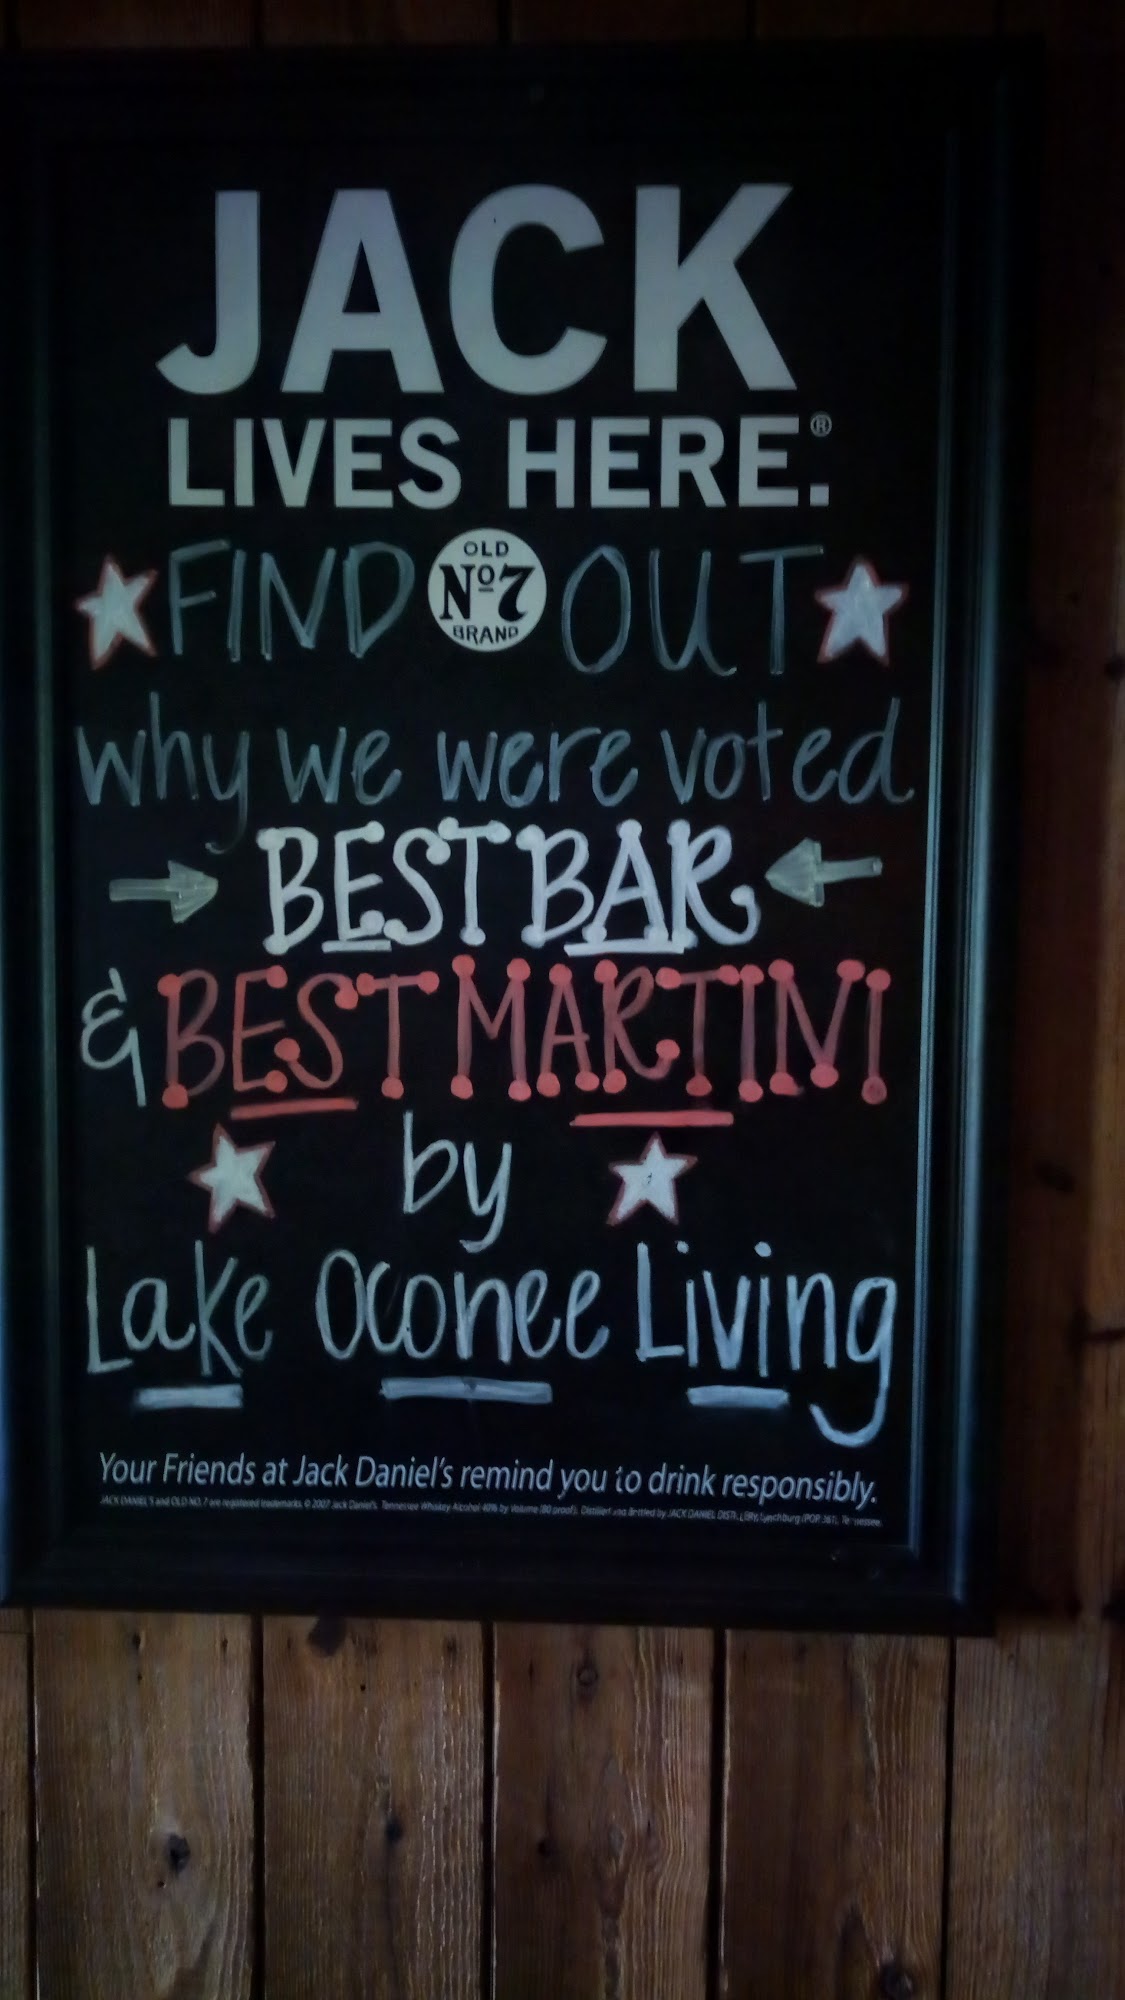 JACK
LIVES HERE.®
FIND OLD Nº7 BRAND OUT
why we were voted
BEST BAR
& BEST MARTINI
by
Lake Oconee Living
Your Friends at Jack Daniel's remind you to drink responsibly.
JACK DANIEL'S and OLD NO. 7 are registered trademarks. © 2007 Jack Daniel's. Tennessee Whiskey Alcohol 40% by Volume (80 proof). Distilled and Bottled by JACK DANIEL DISTILLERY, Lynchburg (POP 361), Tennessee.